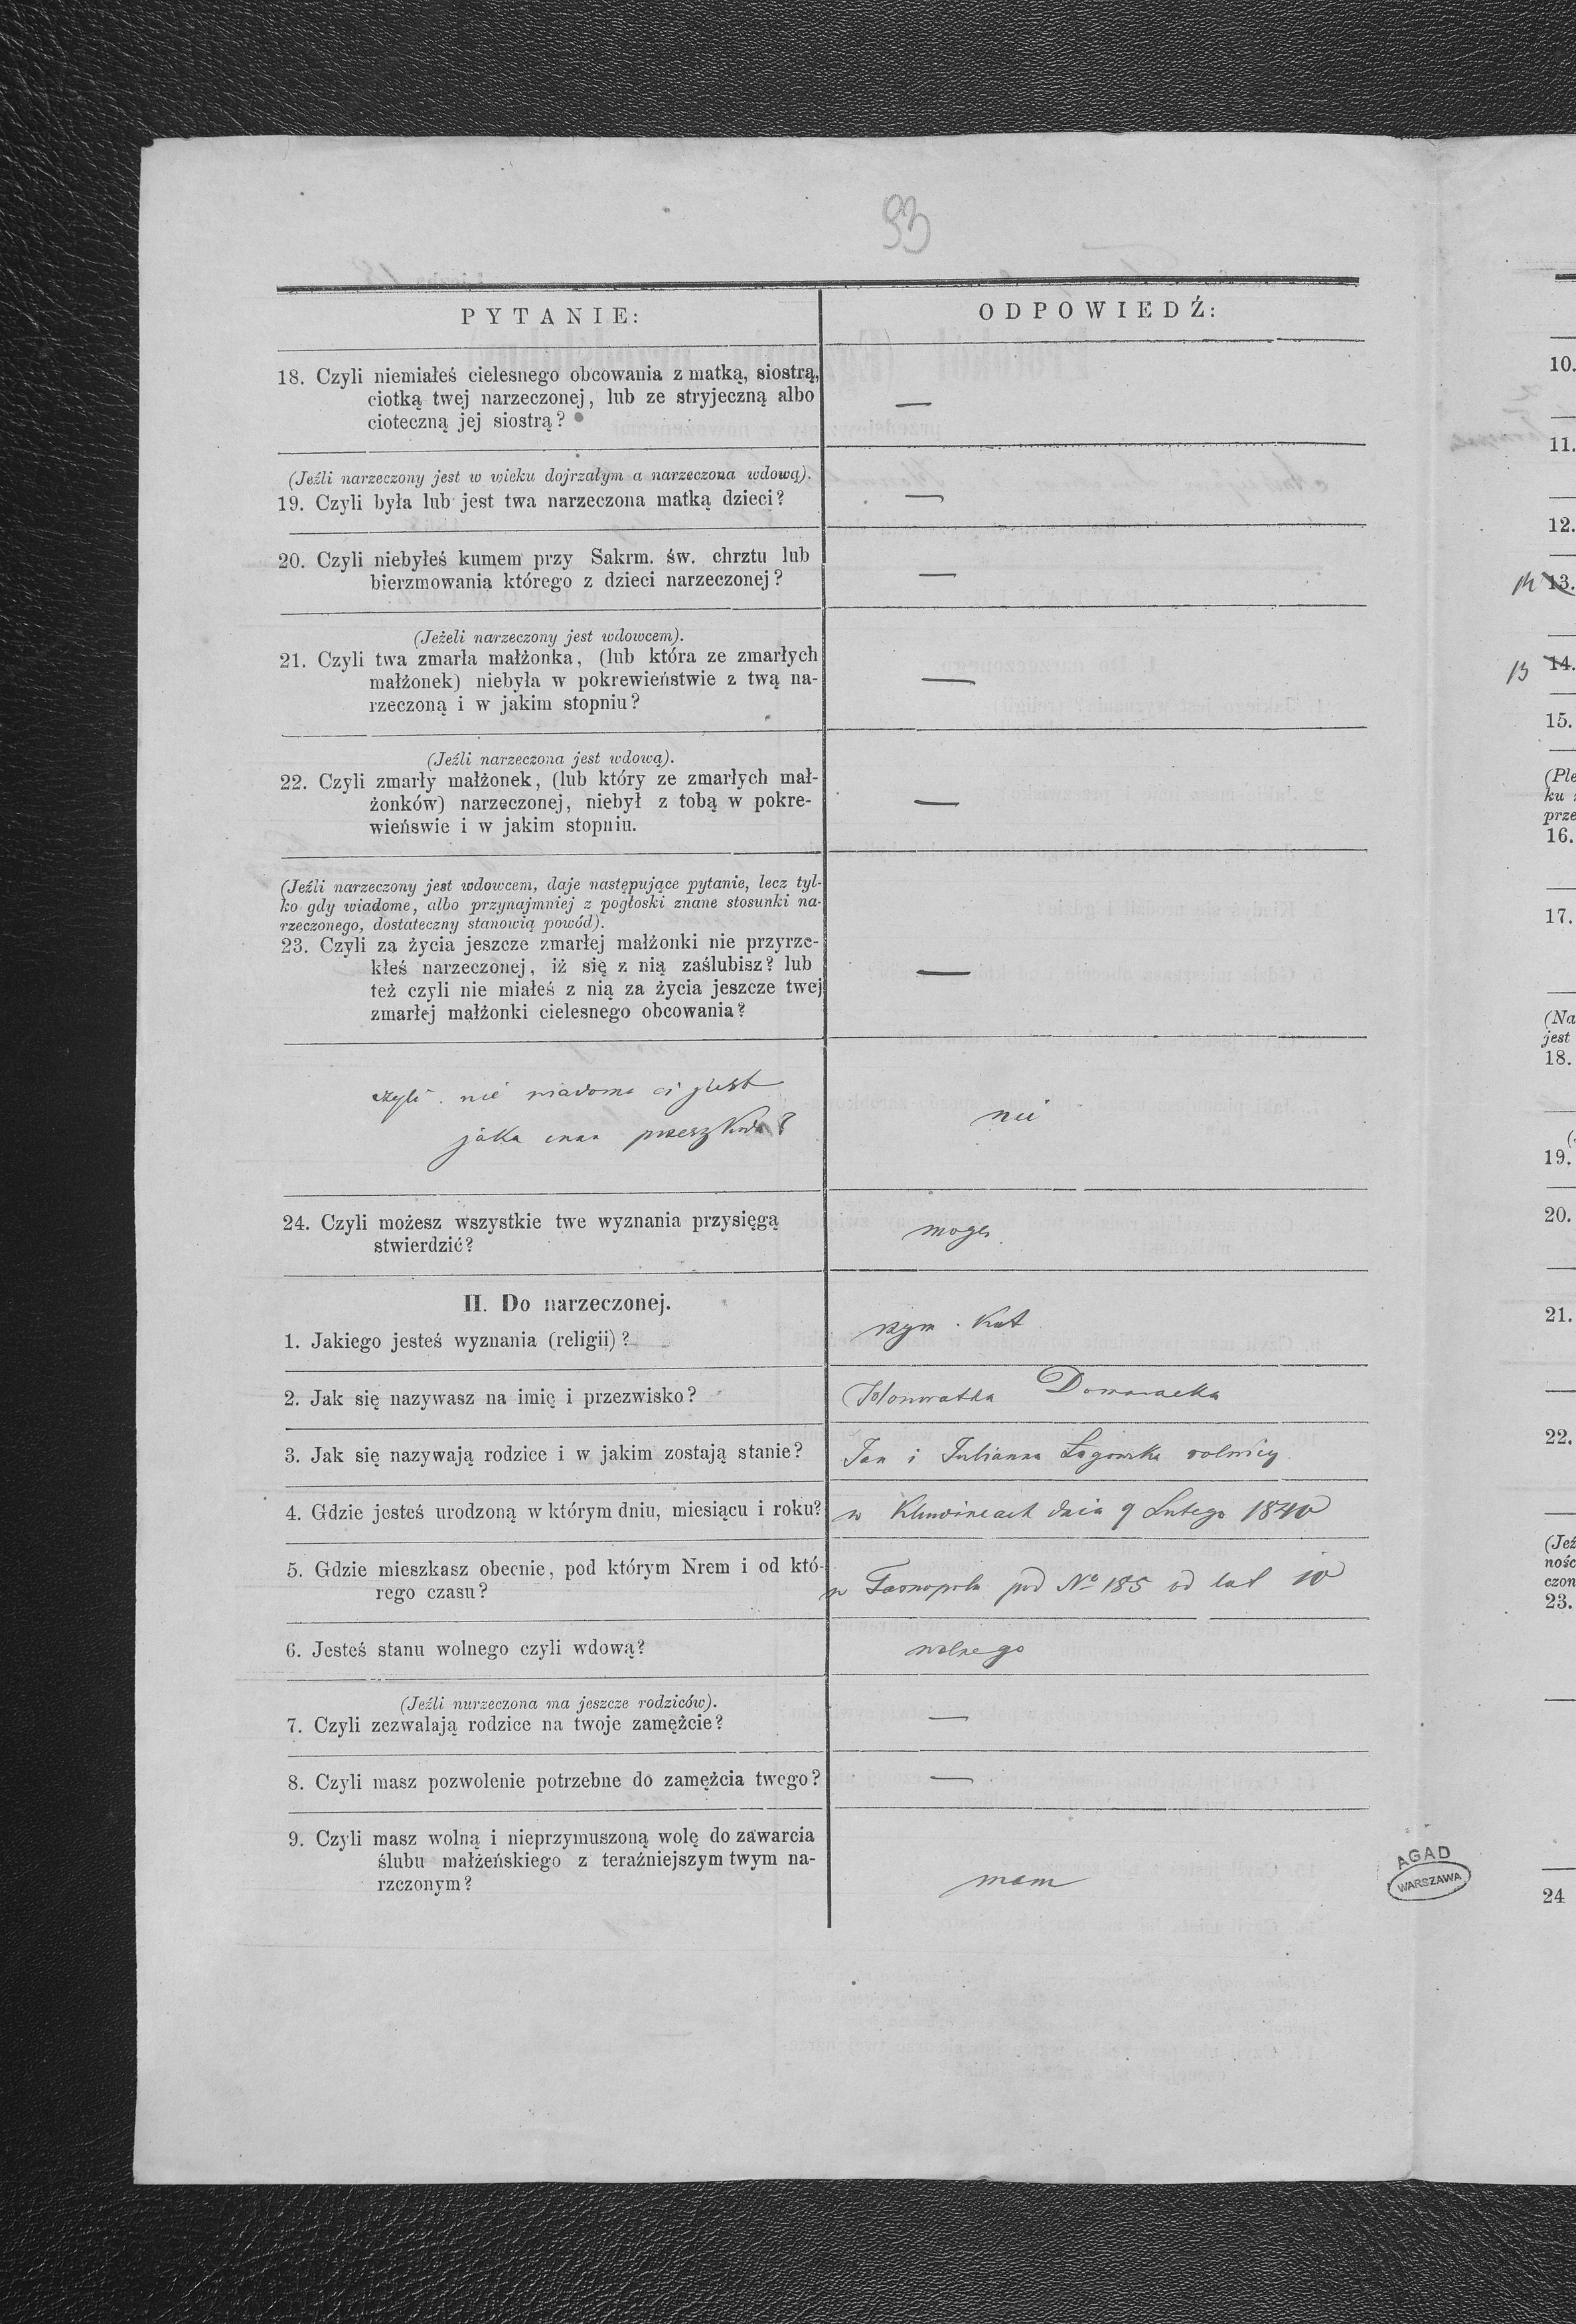 93
PYTANIE:
ODPOWIEDŹ:
18. Czyli niemiałeś cielesnego obcowania z matką, siostrą,
ciotką twej narzeczonej, lub ze stryjeczną albo
cioteczną jej siostrą?
—
(Jeźli narzeczony jest w wieku dojrzałym a narzeczona wdową).
19. Czyli była lub jest twa narzeczona matką dzieci?
—
20. Czyli niebyłeś kumem przy Sakrm. św. chrztu lub
bierzmowania którego z dzieci narzeczonej?
—
(Jeżeli narzeczony jest wdowcem).
21. Czyli twa zmarła małżonka, (lub która ze zmarłych
małżonek) niebyła w pokrewieństwie z twą na-
rzeczoną i w jakim stopniu?
—
(Jeźli narzeczona jest wdową).
22. Czyli zmarły małżonek, (lub który ze zmarłych mał-
żonków) narzeczonej, niebył z tobą w pokre-
wieńswie i w jakim stopniu.
—
(Jeźli narzeczony jest wdowcem, daje następujące pytanie, lecz tyl-
ko gdy wiadome, albo przynajmniej z pogłoski znane stosunki na-
rzeczonego, dostateczny stanowią powód).
23. Czyli za życia jeszcze zmarłej małżonki nie przyrze-
kłeś narzeczonej, iż się z nią zaślubisz? lub
też czyli nie miałeś z nią za życia jeszcze twej
zmarłej małżonki cielesnego obcowania?
—
czyli nie wiadoma ci jest
jaka inna przeszkoda?
nie
24. Czyli możesz wszystkie twe wyznania przysięgą
stwierdzić?
mogę.
II. Do narzeczonej.
1. Jakiego jesteś wyznania (religii)?
rzym. kat
2. Jak się nazywasz na imię i przezwisko?
Honoratha
3. Jak się nazywają rodzice i w jakim zostają stanie?
Jan i Julianna Łagowska rolnicy
4. Gdzie jesteś urodzoną w którym dniu, miesiącu i roku?
w dnia 9 Lutego 1840
5. Gdzie mieszkasz obecnie, pod którym Nrem i od któ-
rego czasu?
w Tarnopolu pod No 185 od lat 10
6. Jesteś stanu wolnego czyli wdową?
wolnego
(Jeźli nurzeczona ma jeszcze rodziców).
7. Czyli zezwalają rodzice na twoje zamężcie?
—
8. Czyli masz pozwolenie potrzebne do zamężcia twego?
—
9. Czyli masz wolną i nieprzymuszoną wolę do zawarcia
ślubu małżeńskiego z teraźniejszym twym na-
rzczonym?
mam
AGAD
WARSZAWA
10.
11.
12.
14 13.
13 14.
15.
(Ple
ku
prze
16.
17.
(Na
jest
18.
19.
20.
21.
22.
(Jeź
nośc
czon
23.
24